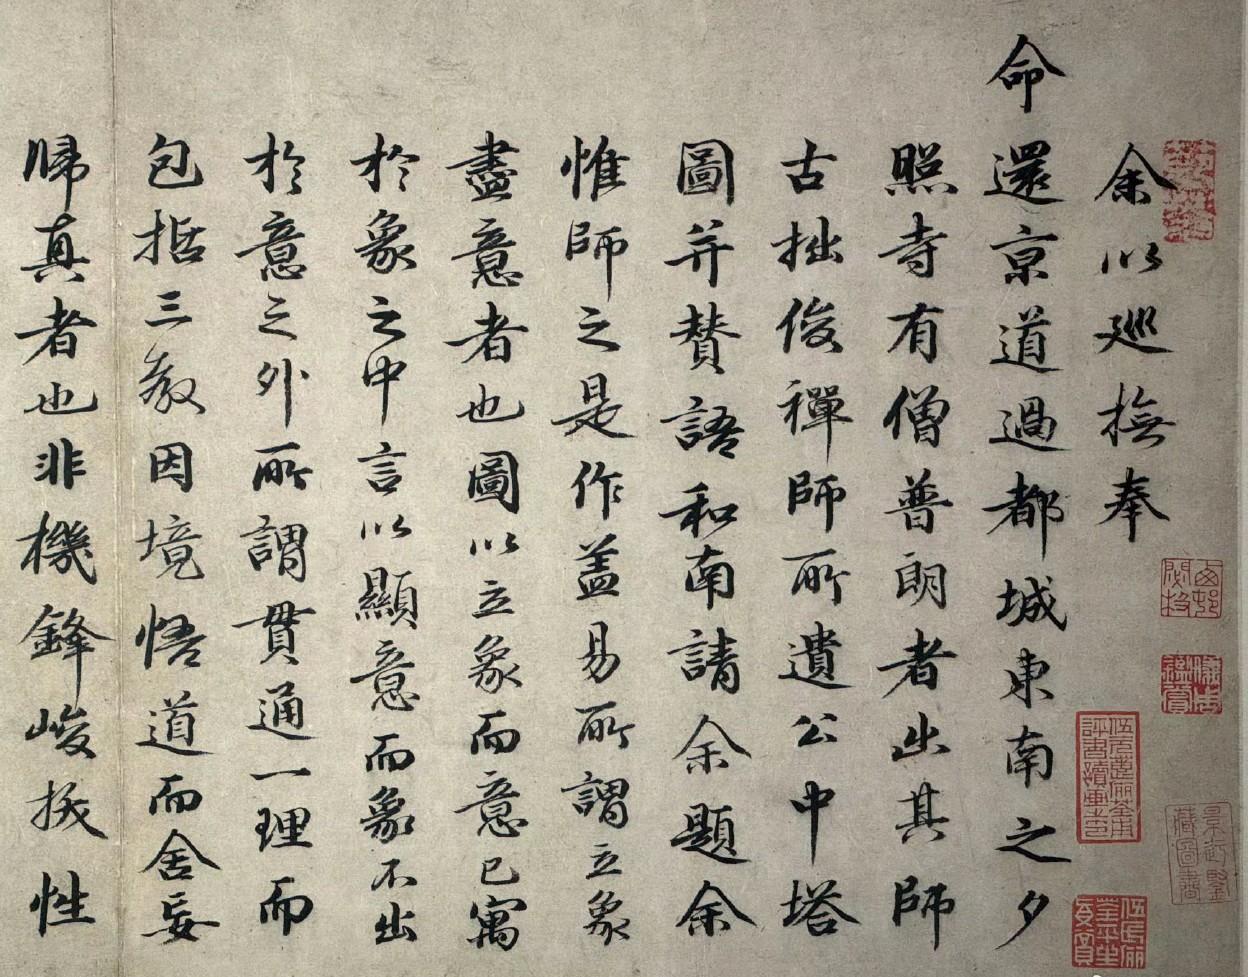 余以巡撫奉
命還京道過都城東南之夕
照寺有僧普朗者出其師
古拙俊禪師所遺公中塔
圖并賛語和南請余題余
惟師之是作盖易所謂立象
盡意者也圖以立象而意已寓
於象之中言以顯意而象不出
於意之外所謂貫通一理而
包括三教因境悟道而舍妄
歸真者也非機鋒峻拔性